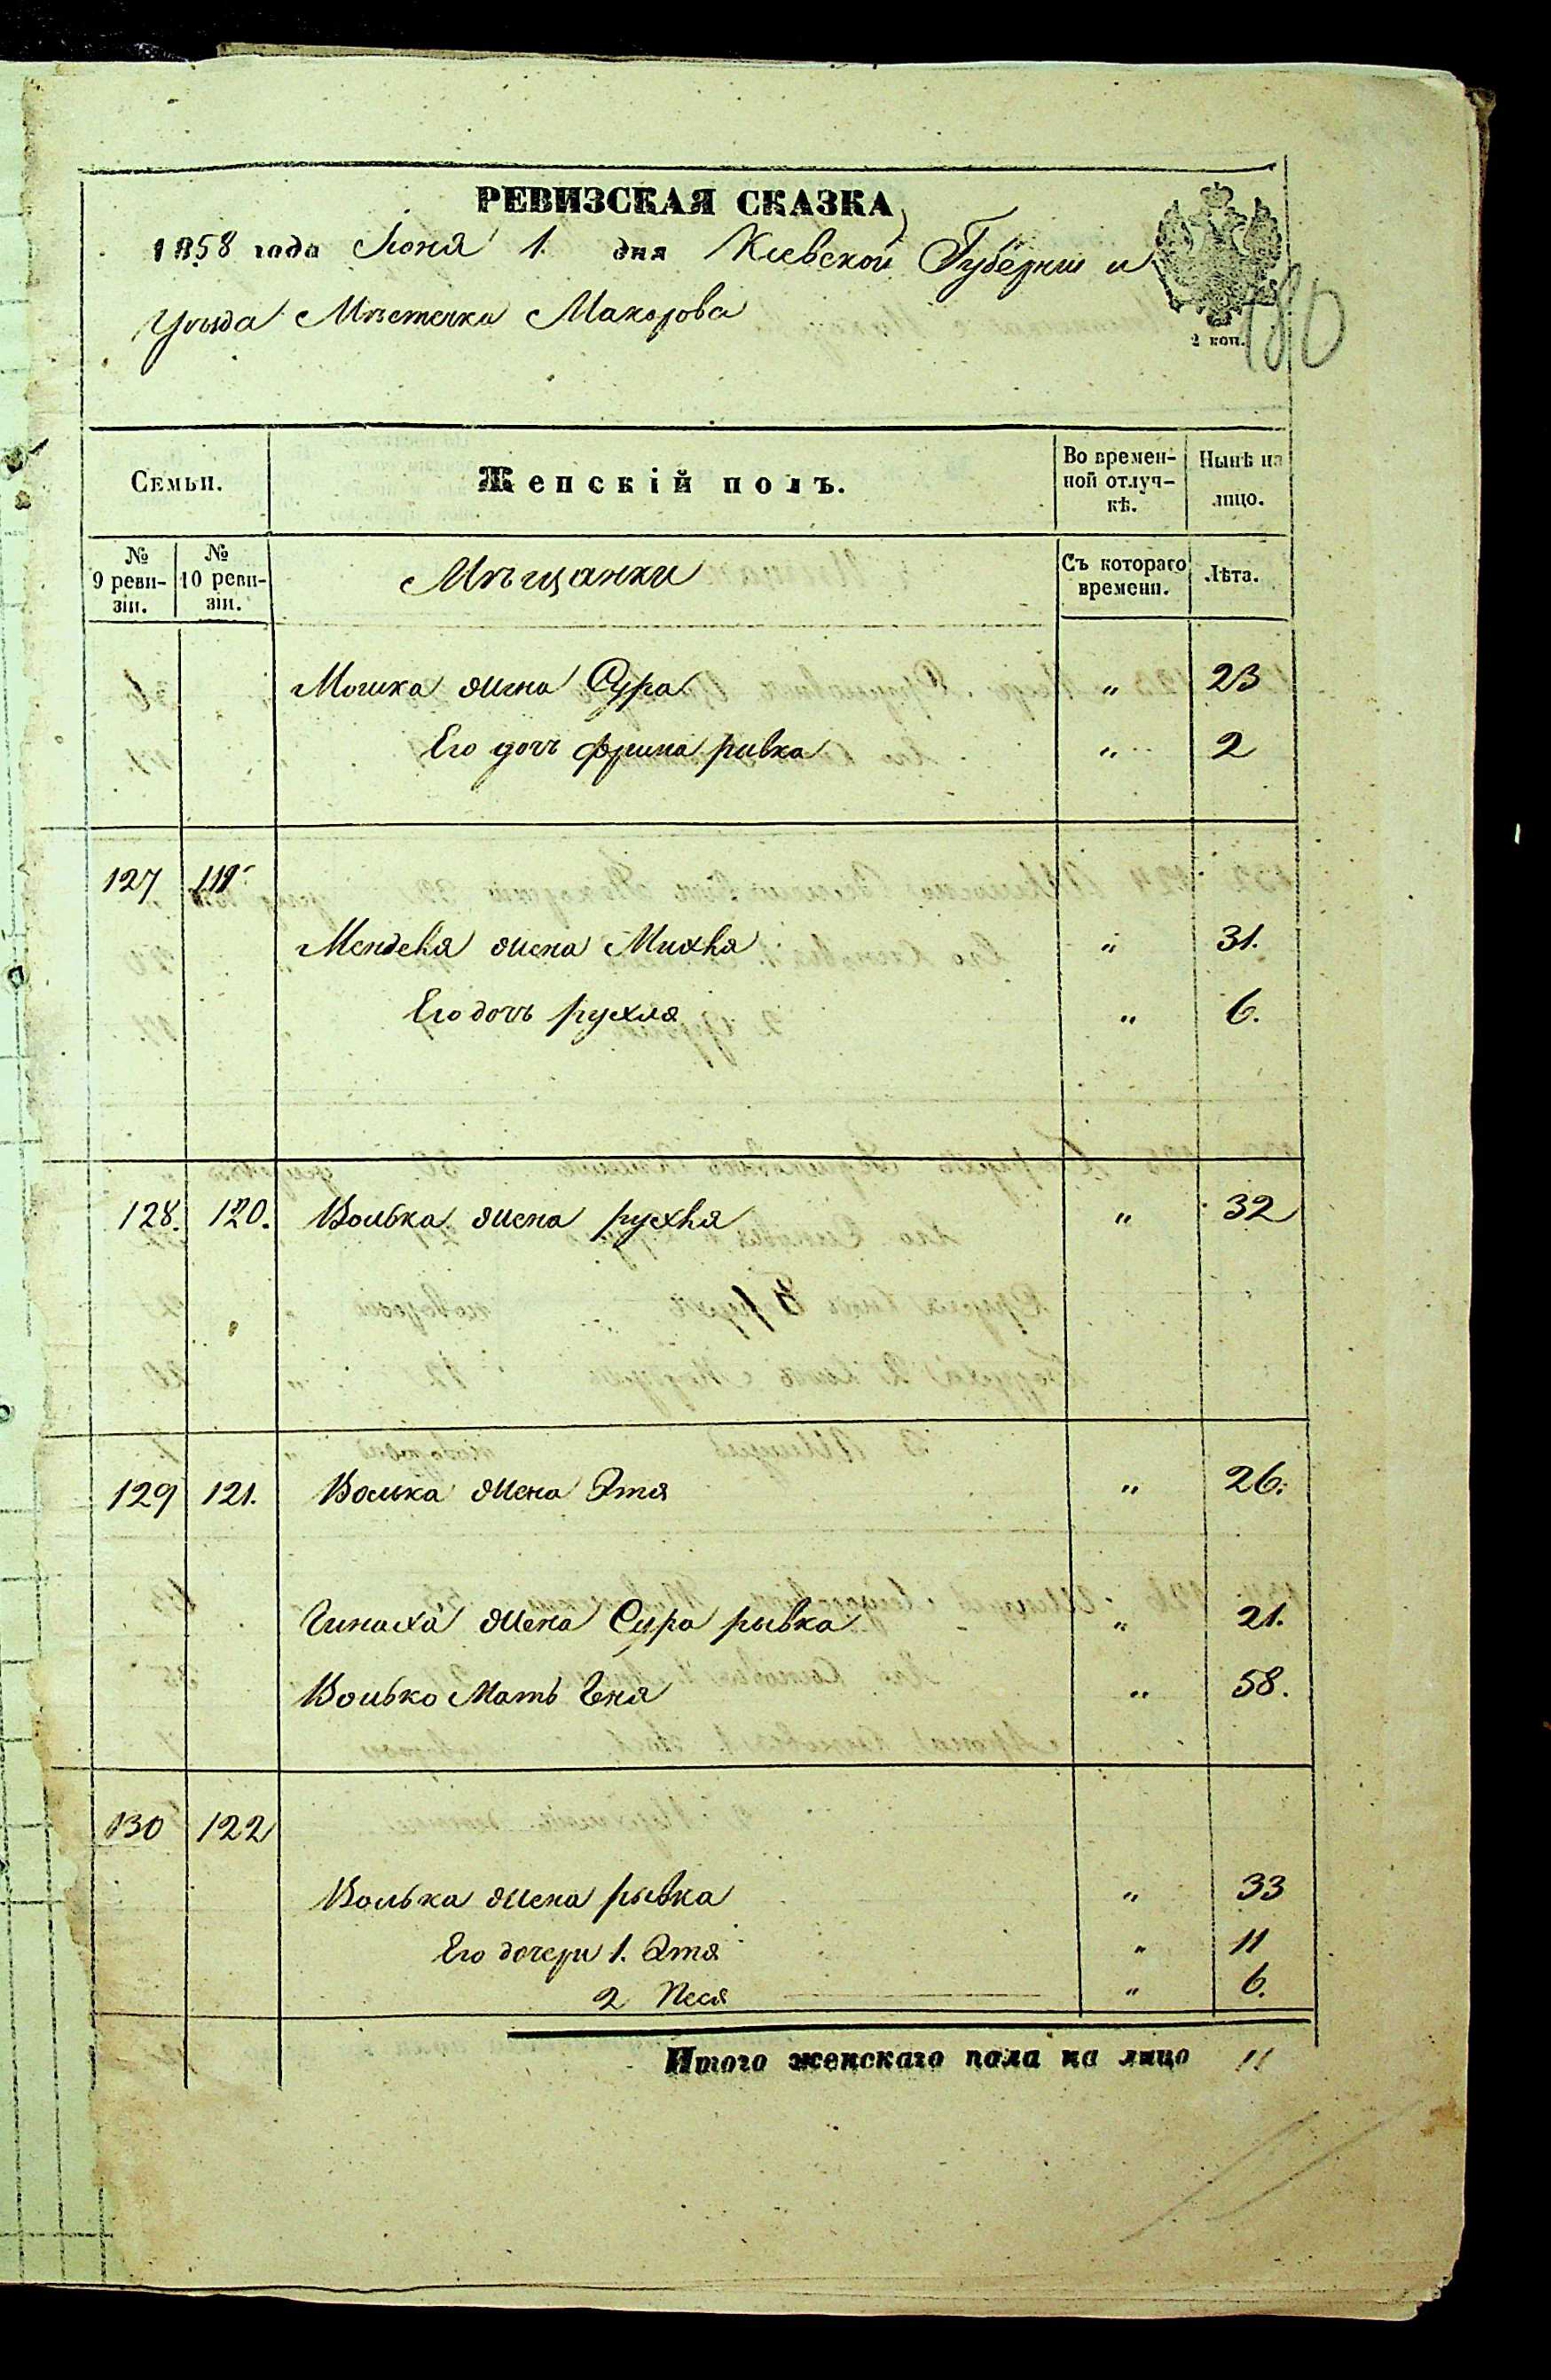 РЕВИЗСКАЯ СКАЗКА
1858 года Іюня 1. дня Кіевской Губерніи и
Уѣзда Мѣстечка Макарова
2 коп.
180
Семьи.
Женскій полъ.
Во времен-
ной отлуч-
кѣ.
Нынѣ на
лицо.
№
9 реви-
зіи.
№
10 реви-
зіи.
Мѣщанки
Съ котораго
времени.
Лѣта.
Мошка жена Сура " 23
Его дочь фрима ривка " 2
127 119
Менделя жена Михля " 31.
Его дочь рухля " 6.
128. 120. Волька жена рухля " 32
129 121. Волька жена Этя " 26.
жена Сура рывка " 21.
Волько Мать Геня " 58.
130 122
Волька жена рывка " 33
Его дочери 1. Этя " 11
2 Песя " 6.
Итого женскаго пола на лицо 11